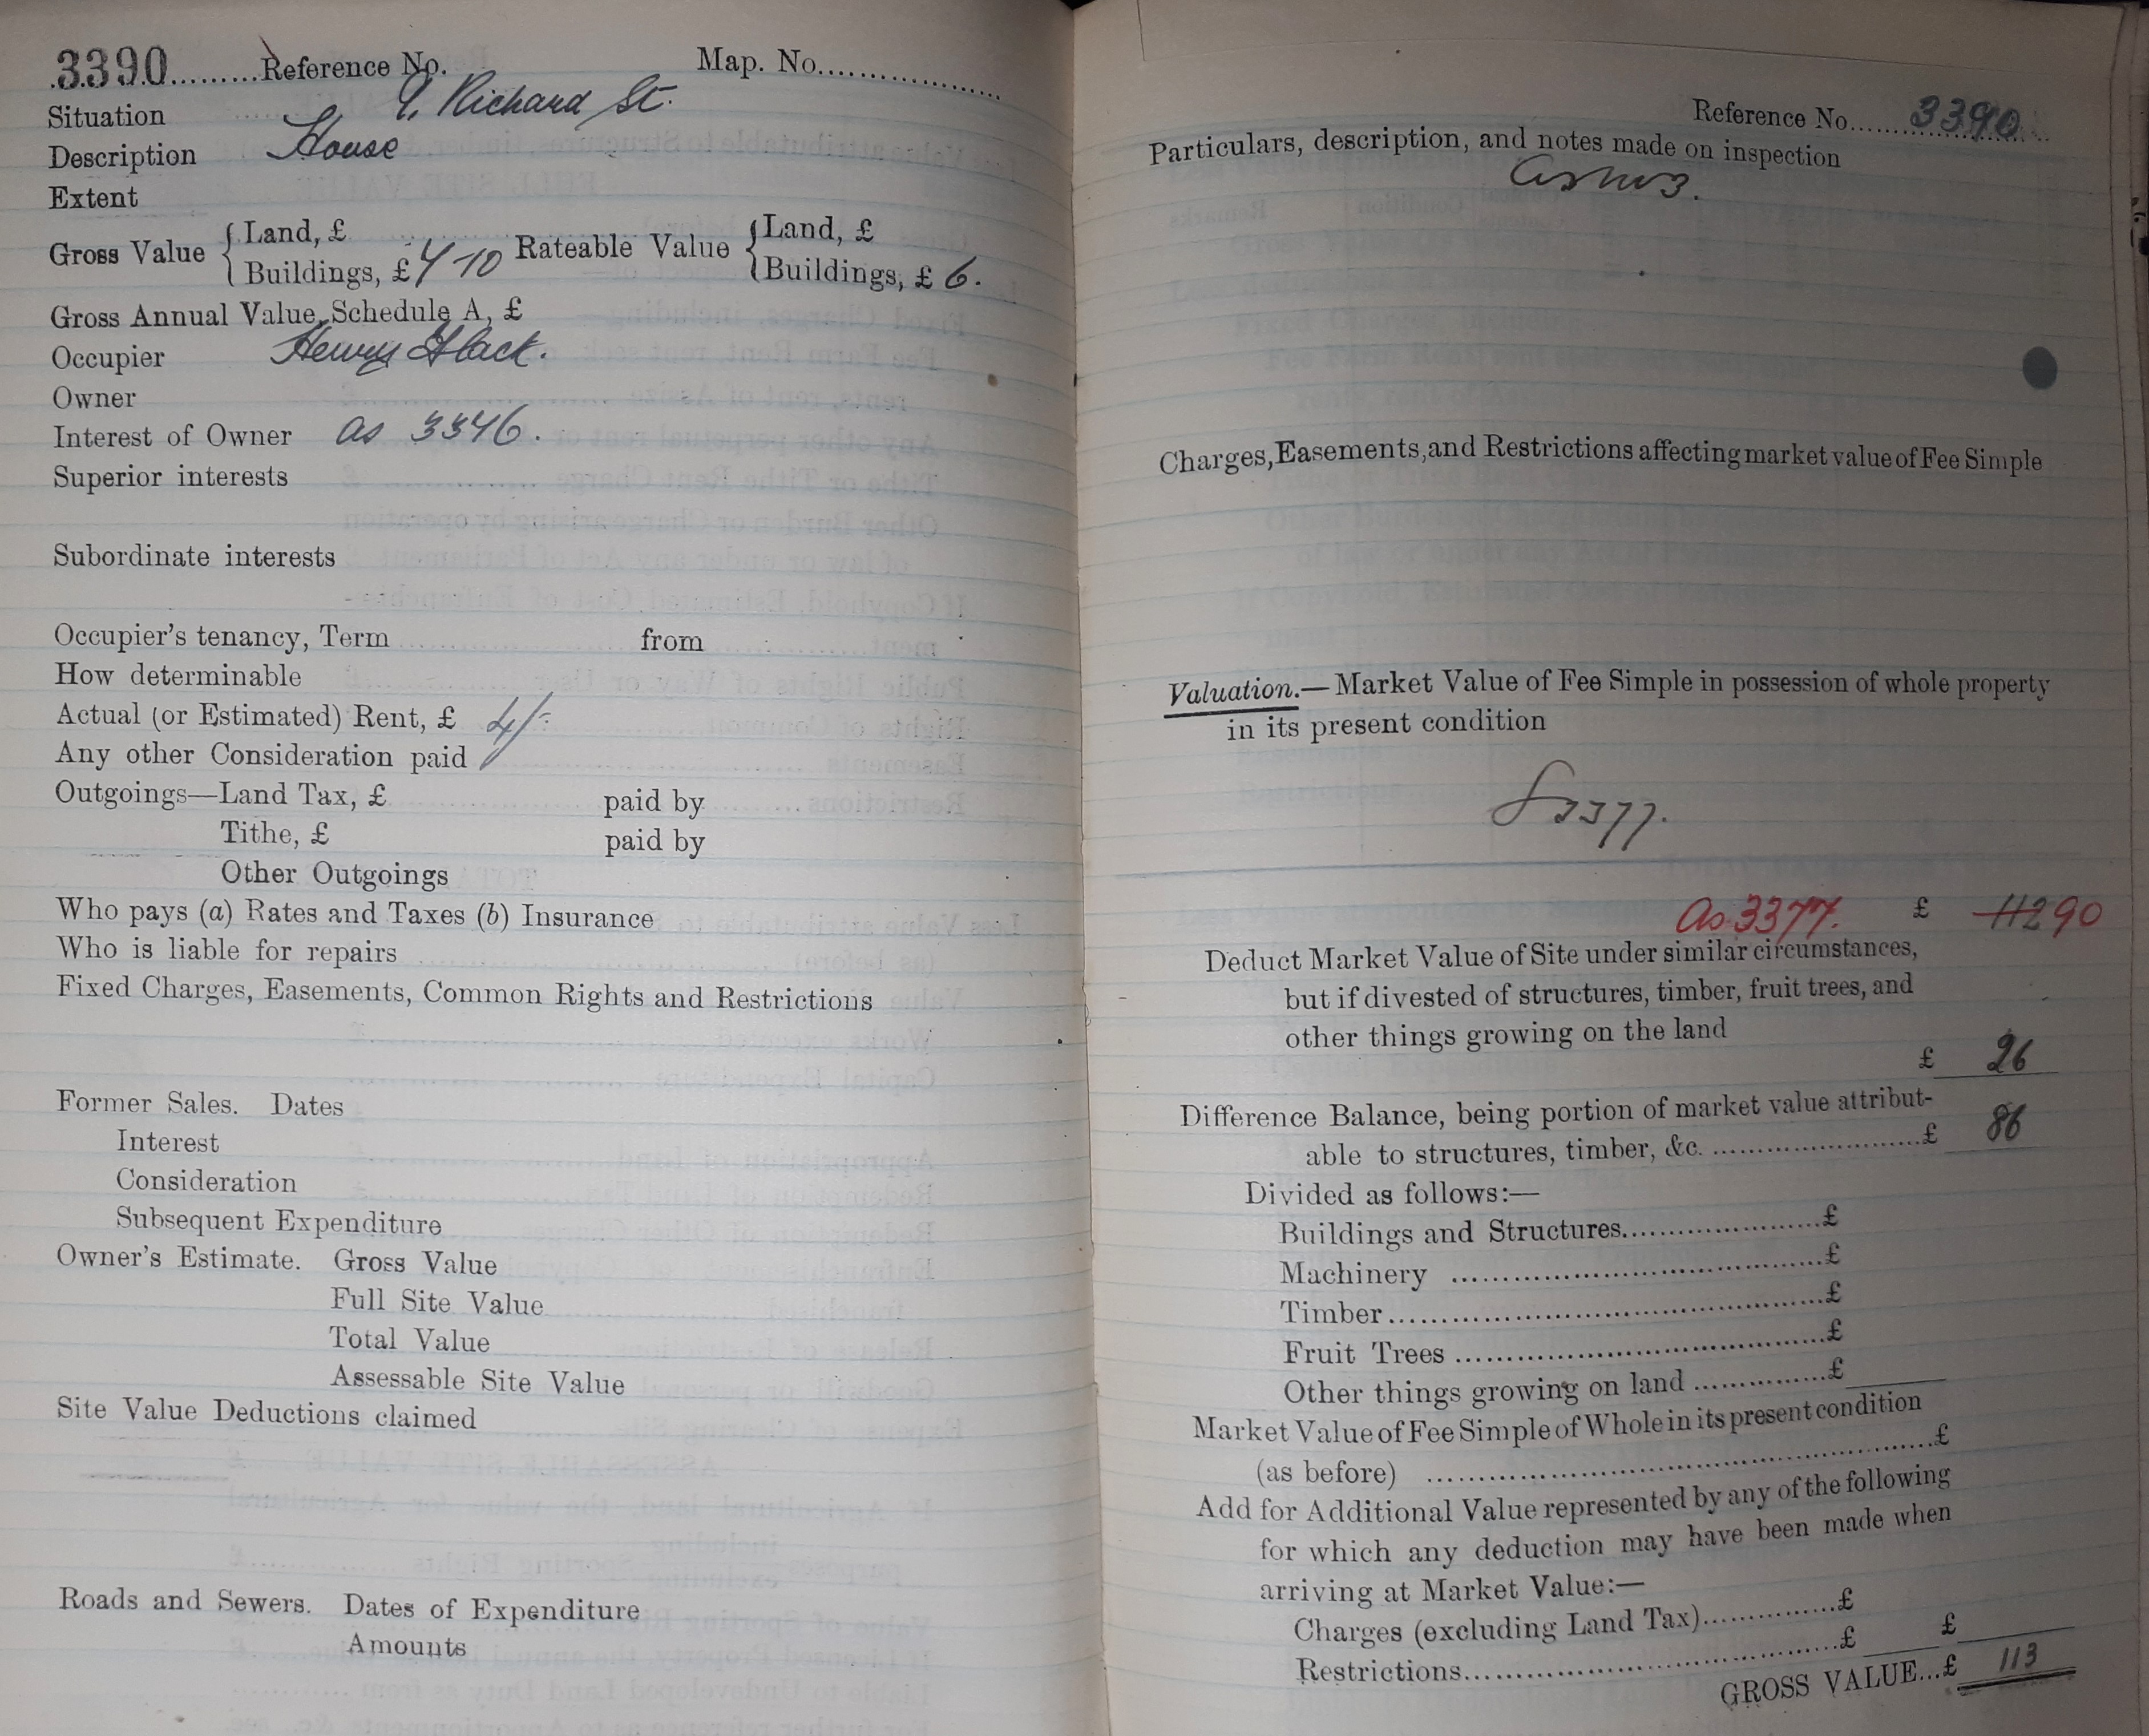 3390.........Reference No. Map. No....................
Situation 9, Richard St.
Description House
Extent
Gross Value { Land, £ Rateable Value { Land, £
Buildings, £ 7-10 Buildings, £ 6.
Gross Annual Value, Schedule A, £
Occupier Henry Slack.
Owner
Interest of Owner as 3346.
Superior interests
Subordinate interests
Occupier's tenancy, Term from
How determinable
Actual (or Estimated) Rent, £ 4/-
Any other Consideration paid
Outgoings—Land Tax, £ paid by
Tithe, £ paid by
Other Outgoings
Who pays (a) Rates and Taxes (b) Insurance
Who is liable for repairs
Fixed Charges, Easements, Common Rights and Restrictions
Former Sales. Dates
Interest
Consideration
Subsequent Expenditure
Owner's Estimate. Gross Value
Full Site Value
Total Value
Assessable Site Value
Site Value Deductions claimed
Roads and Sewers. Dates of Expenditure
Amounts
Reference No. 3390
Particulars, description, and notes made on inspection
Charges, Easements, and Restrictions affecting market value of Fee Simple
Valuation.— Market Value of Fee Simple in possession of whole property
in its present condition
3377.
As 3377. £ 90
Deduct Market Value of Site under similar circumstances,
but if divested of structures, timber, fruit trees, and
other things growing on the land
£ 26
Difference Balance, being portion of market value attribut-
able to structures, timber, &c. ........................£ 86
Divided as follows:—
Buildings and Structures........................£
Machinery ........................£
Timber........................£
Fruit Trees ........................£
Other things growing on land ...............£
Market Value of Fee Simple of Whole in its present condition
(as before) ........................£
Add for Additional Value represented by any of the following
for which any deduction may have been made when
arriving at Market Value:—
Charges (excluding Land Tax)...............£
Restrictions........................£ £
GROSS VALUE...£ 113